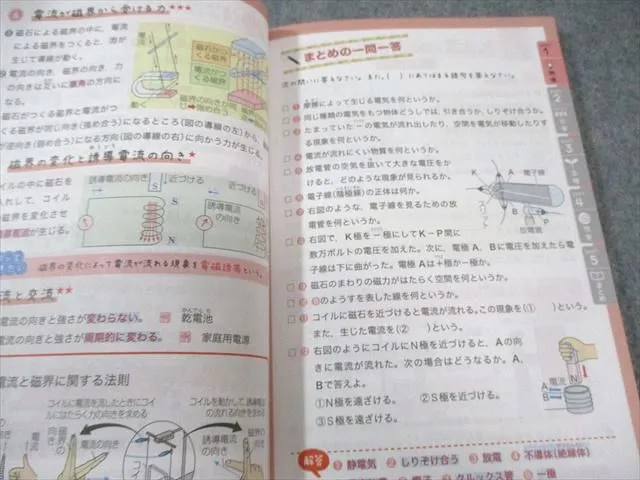 電流が磁界から受ける力 ★★★
磁石による磁界の中に、電流
による磁界をつくると、導線が
生じて導線が動く。
電流の向き、磁界の向き、力
の向きは互いに直角の方向に
なる。
磁石がつくる磁界と電流がつ
くる磁界が同じ向き(強め合う)になるところ(図の導線の左)から、
逆向き(弱め合う)になる方向(図の導線の右)に向かう力が生じる。
磁石がつ
くる磁界
電流がつ
くる磁界
磁界の向きが
磁界の変化と誘導電流の向き ★
コイルの中に磁石を
入れして、コイル
磁界を変化させ
誘導電流が生じる。
誘導電流の向き
近づける
近づける
誘導電流
の向き
S
N
磁界の変化によって電流が流れる現象を電磁誘導という。
流と交流 ★★
電流の向きと強さが変わらない。 例 乾電池
電流の向きと強さが周期的に変わる。 例 家庭用電源
電流と磁界に関する法則
コイルに電流を流したときにコイ
ルにはたらく力の向きを求める
コイルを動かして、誘導電
の流れる向きを求める
コイル
誘導電流
の向き
まとめの一問一答
次の問いに答えなさい。また、( )にあてはまる語句を答えなさい。
□ ❶ 摩擦によって生じる電気を何というか。
□ ❷ 同じ種類の電気をもつ物体どうしでは、引き合うか、しりぞけ合うか。
□ ❸ たまっていた−の電気が流れ出したり、空間を電気が移動したりす
る現象を何というか。
□ ❹ 電流が流れにくい物質を何というか。
□ ❺ 放電管の空気を抜いて大きな電圧をか
けると、どのような現象が見られるか。
□ ❻ 電子線(陰極線)の正体は何か。
□ ❼ 右図のような、電子線を見るための放
電管を何というか。
□ ❽ 右図で、K極を−極にしてK−P間に
数万ボルトの電圧を加えた。次に、電極A、Bに電圧を加えたら電
子線は下に曲がった。電極Aは＋極か−極か。
K
A
電子線
スリット
B
P
放電管
□ ❾ 磁石のまわりの磁力がはたらく空間を何というか。
□ ❿ ❾のようすを表した線を何というか。
□ ⓫ コイルに磁石を近づけると電流が流れる。この現象を(① )という。
また、生じた電流を(② )という。
□ ⓬ 右図のようにコイルにN極を近づけると、Aの向
きに電流が流れた。次の場合はどうなるか。A、
Bで答えよ。
①N極を遠ざける。 ②S極を近づける。
③S極を遠ざける。
電流
A
B
N
解答
❶ 静電気 ❷ しりぞけ合う ❸ 放電 ❹ 不導体(絶縁体)
❼ クルックス管 ❽ ＋極
1
2
3
4
5
まとめ